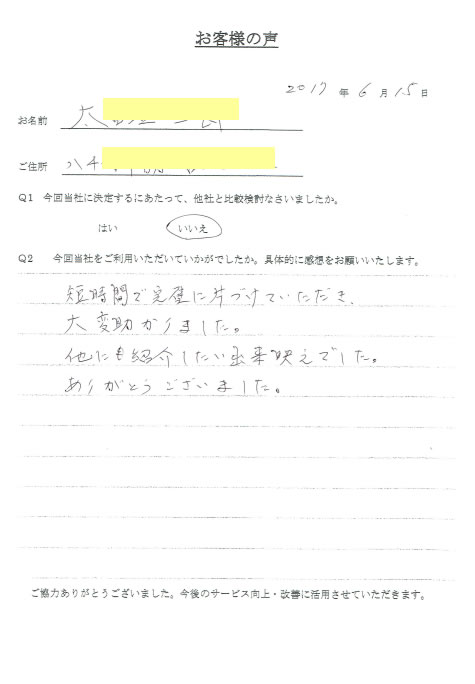 お客様の声
2017 年 6 月 15 日
お名前 大
ご住所 八千
Q1 今回当社に決定するにあたって、他社と比較検討なさいましたか。
はい いいえ
Q2 今回当社をご利用いただいていかがでしたか。具体的に感想をお願いいたします。
短時間で完璧に片づけていただき、
大変助かりました。
他にも紹介したい出来映えでした。
ありがとうございました。
ご協力ありがとうございました。今後のサービス向上・改善に活用させていただきます。